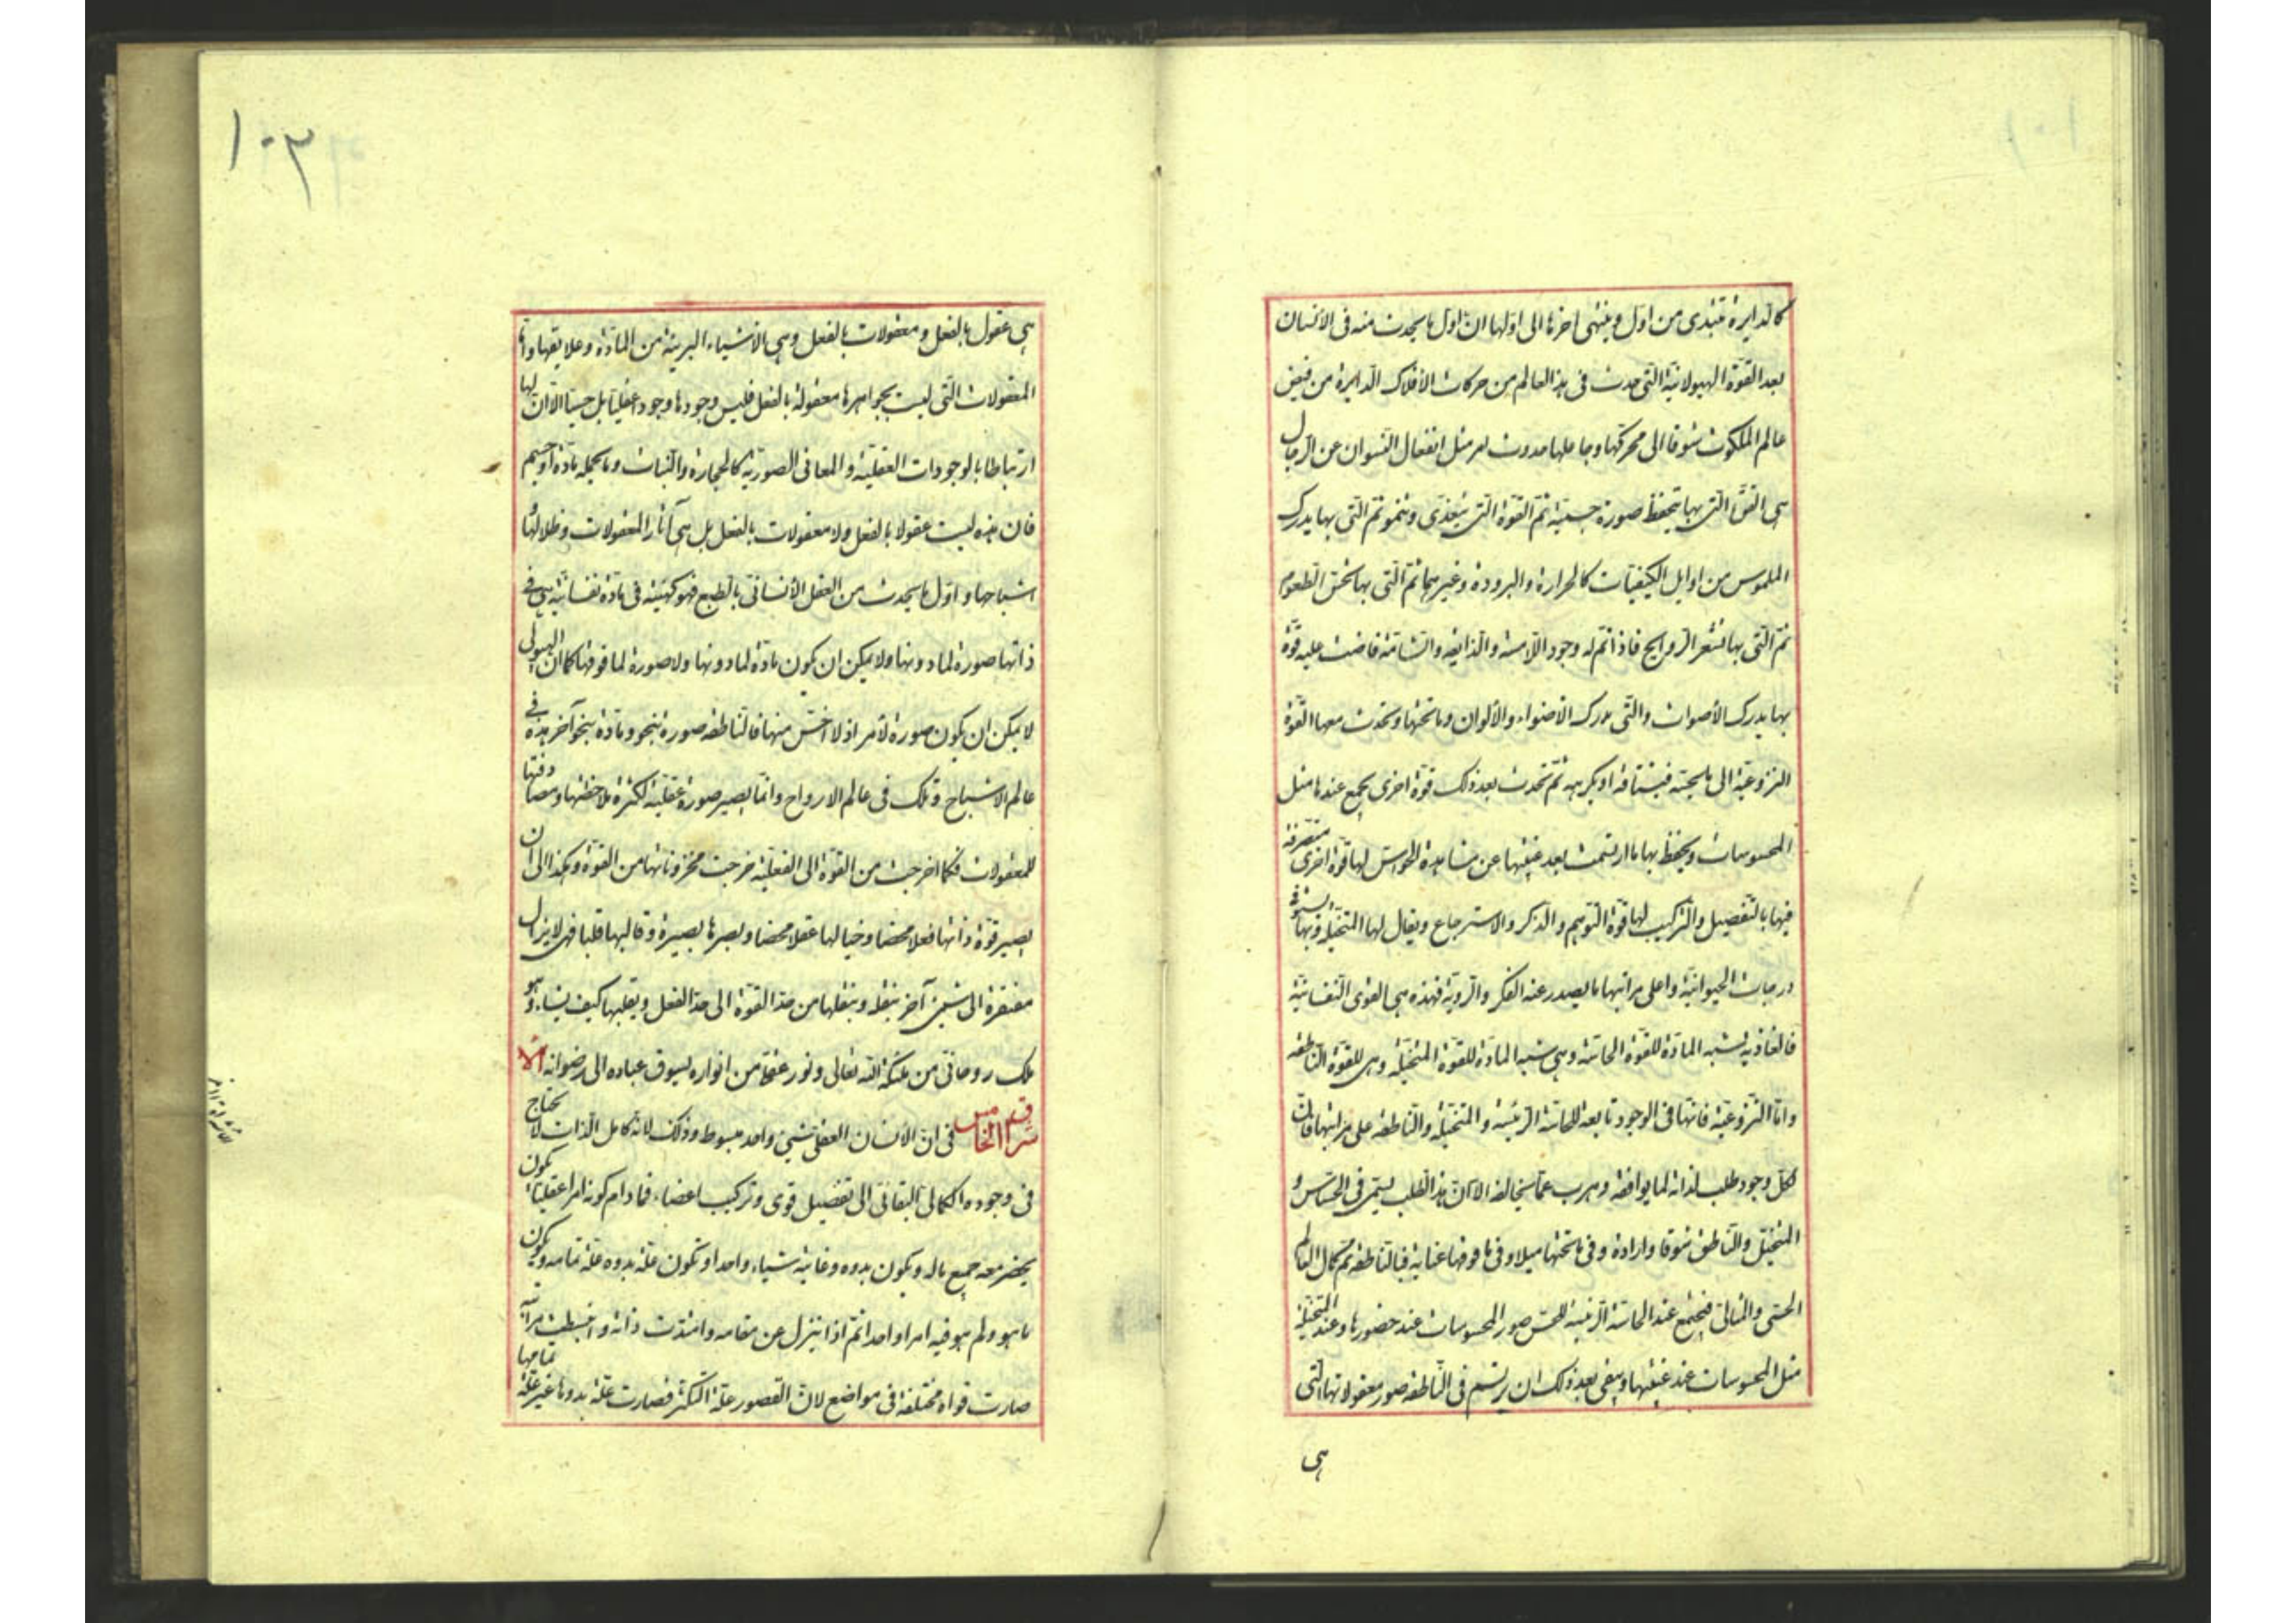 كالدايرة تبتدى من اول وينتهى اخرها الى اولها ان اول ما يحدث منه فى الانسان
بعد القوة الهيولانية التى حدثت فى هذا العالم من حركات الأفلاك الدايرة من فيض
عالم الملكوت شوقا الى محركها وجاعلها حدوث مثل انفعال النسوان عن الرجال
هى التى بها يحفظ صورة جسمية ثم القوة التى يتغذى وينمو ثم التى بها يدرك
الملموس من اوايل الكيفيات كالحرارة والبرودة وغيرهما ثم التى بها يحس الطعوم
ثم التى بها تشعر الروايح فاذا تم له وجود اللامسة والذايقة والشامة فاضت عليه قوة
بها يدرك الأصوات والتى يدرك الأضواء والألوان وما تحتها وتحدث معها القوة
النزوعية الى ما يحسه فيشتاقه او يكرهه ثم تحدث بعد ذلك قوة اخرى يجمع عندها مثل
المحسوسات ويحفظ بها ما ارتسمت بعد غيبتها عن مشاهدة الحواس لها قوة اخرى متصرفة
فيها بالتفصيل والتركيب لها قوة التوهم والذكر والاسترجاع ويقال لها المتخيلة وبها
درجات الحيوانية واعلى مراتبها ما يصدر عنه الفكر والروية فهذه هى القوى النفسانية
فالغاذية يشبه المادة للقوة الحاسة وهى شبه المادة للقوة المتخيلة وهى للقوة الناطقة
واما النزوعية فانها فى الوجود تابعة للحاسة الرئيسة والمتخيلة والناطقة على مراتبها فان
لكل وجود طلب لذاته لما يوافقه وهرب عما يخالفه الا ان هذا الطلب يسمى فى الحساس و
المتخيل والناطق شوقا وارادة وفى ما تحتها ميلا وفى ما فوقها عناية فبالناطقة تم كمال العالم
الحسى والمثالى فيجتمع عند الحاسة الرئيسة للحس صور المحسوسات عند حضورها وعند المتخيلة
مثل المحسوسات عند غيبتها وبقى بعد ذلك ان يرتسم فى الناطقة صور معقولاتها التى
هى
١٠٣
هى عقول بالفعل ومعقولات بالفعل وهى الأشياء البريئة من المادة وعلايقها واما
المعقولات التى ليست بجواهرها معقولة بالفعل فليس وجودها وجودا عقليا بل حسيا الا ان لها
ارتباطا بالوجودات العقلية والمعانى الصورية كالحجارة والنبات وما يحمله مادة او جسم
فان هذه ليست عقولا بالفعل ولا معقولات بالفعل بل هى آثار المعقولات وظلالها و
اشباحها واول ما يحدث من العقل الأنسانى بالطبع فهو كهيئة فى مادة نفسانية هى فى
ذاتها صورة لما دونها ولا يمكن ان يكون مادة لما دونها ولا صورة لما فوقها كما ان الهيولى
لا يمكن ان يكون صورة لأمر اذ لا اخس منها فالناطقة صورة بنحو ومادة بنحو آخر هذه فى
عالم الاشباح وتلك فى عالم الارواح وانما يصير صورة عقلية لكثرة ملاحظتها ومصادفتها
للمعقولات فكلما خرجت من القوة الى الفعلية خرجت مخزوناتها من القوة وهكذا الى ان
يصير قوة ذاتها فعلا محضا وخيالها عقلا محضا وبصرها بصيرة وقالبها قلبا فهى لا يزال
مفتقرة الى شيئ آخر ينقله وينقلها من حد القوة الى حد الفعل ويقلبها كيف يشاء وهو
ملك روحانى من ملئكة الله تعالى ونور عقلى من انواره يسوق عباده الى رضوانه الا
شراق الخامس فى ان الأنسان العقلى شيئ واحد مبسوط وذلك لانه كامل الذات لا يحتاج
فى وجوده الكمالى البقائى الى تفضيل قوى وتركيب اعضاء فما دام كونه امرا عقليا يكون
يحضر معه جميع ماله ويكون بدوه وغايته شياء واحدا وتكون علة بدوه علة تمامه ويكون
ما هو ولم هو فيه امرا واحدا ثم اذا ينزل عن مقامه وامتدت ذاته وانبسطت
صارت قواه مختلفة فى مواضع لان القصور علة التكثر فصارت علة بدوها غير علة تمامها